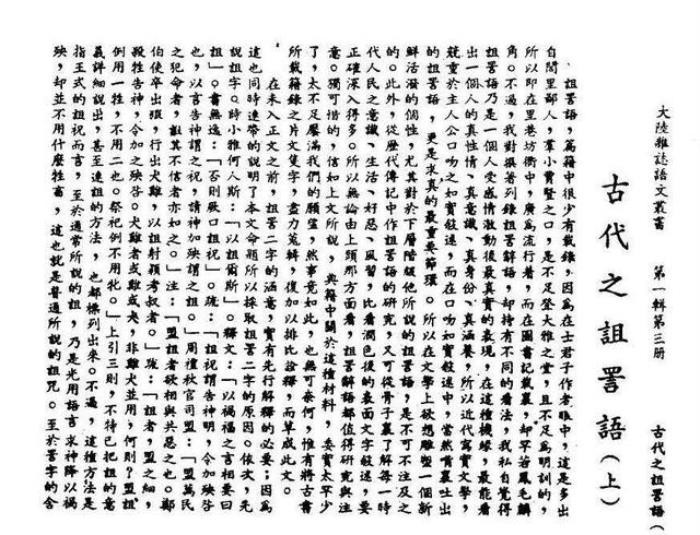 大陸雜誌語文叢書　第一輯第三册　古代之詛詈語(
古代之詛詈語(上)
詛詈語,篇籍中很少有載錄,因爲在士君子作者眼中,這是多出
自閭里鄙人,羣小賣豎之口,是不足登大雅之堂,且不足爲明訓的,
所以即在里巷坊衢中,廣爲流行着,而在圖書記載裏,却罕若鳳毛麟
角。不過,我對撰著列錄詛詈辭語,却持有不同的看法,我私自覺得
詛詈語乃是一個人受感情激動後最真實的表現,在這種機緣,最能看
出一個人的真性情、真意識、真身份、真涵養,所以近代寫實文學,
競重於主人公口吻之如實敍述,而在口吻如實敍述中,當然背囊吐出
的詛詈語,更是求真的最重要節環。所以在文學上欲想雕塑一個新
鮮活潑的個性,尤其對於下層階級他所說的詛詈語,是不可不注及之
的。此外,從歷代傳記中作詛詈語的研究,又可從骨子裏了解每一時
代人民之意識、生活、好惡、風習,比看潤色後的表面文字敍述,要
正確深入得多。所以無論由上頭那方面看,詛詈辭語都值得研究與注
意。獨可惜的,信如上文所說,典籍中關於這種材料,委實太罕少
了,太不足饜滿我們的願望,然事竟如此,也無可奈何,惟有將古書
所載籍錄之片文隻字,盡力蒐輯,復加以排比詮釋,而草成此文。
在未入正文之前,詛詈二字的涵意,實有先行解釋的必要;因爲
這也同時連帶的說明了本文命題所以採取詛詈二字的原因。依次,先
說詛字。詩小雅何人斯:「以詛爾斯」。釋文:「以禍福之言相要曰
詛」。書無逸:「否則厥口詛祝」。疏:「詛祝謂告神明,令加殃咎
也,以言告神謂之祝,請神加殃謂之詛。」周禮秋官司盟:「盟萬民
之犯命者,詛其不信者亦如之。」注:「盟詛者欲相與共惡之也。鄭
伯使卒出豭,行出犬雞,以詛射潁考叔者。」疏:「詛者,盟之細,
殺牲告神,令加之殃咎。犬雞者或雞或犬,非雞犬並用,何則?盟詛
例用一牲,不用二也。祭祀例不用牝。」上引三則,不特已把詛的意
義詳細說出,甚至連詛的方法,也都標列出來。不過,這種方法是
指正式的詛祝而言,至於通常所說的詛,乃是光用語言求神降以禍
殃,却並不用什麼牲畜,這也就是普通所說的詛咒。至於詈字的含